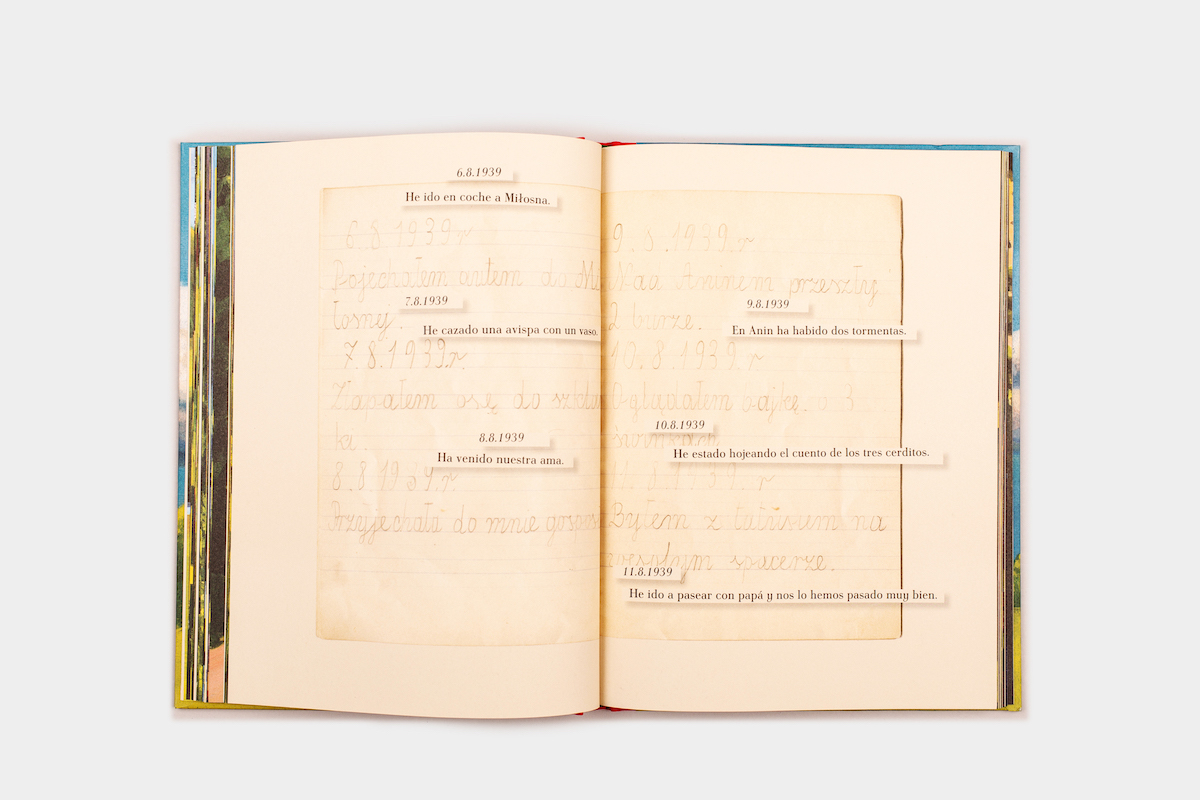 6.8.1939
He ido en coche a Miłosna.
6.8.1939 r
Pojechałem autem do Mi
7.8.1939
łosnej.
He cazado una avispa con un vaso.
7.8.1939.r.
Złapałem osę do szklan
ki.
8.8.1939
Ha venido nuestra ama.
8.8.1939.r.
Przyjechała do mnie gosposia
9.8.1939 r
Nad Aninem przeszły
9.8.1939
2 burze.
En Anin ha habido dos tormentas.
10.8.1939 r
Oglądałem bajkę. o 3
10.8.1939
świnkach
He estado hojeando el cuento de los tres cerditos.
11.8.1939. r
Byłem z tatusiem na
wesołym spacerze.
11.8.1939
He ido a pasear con papá y nos lo hemos pasado muy bien.